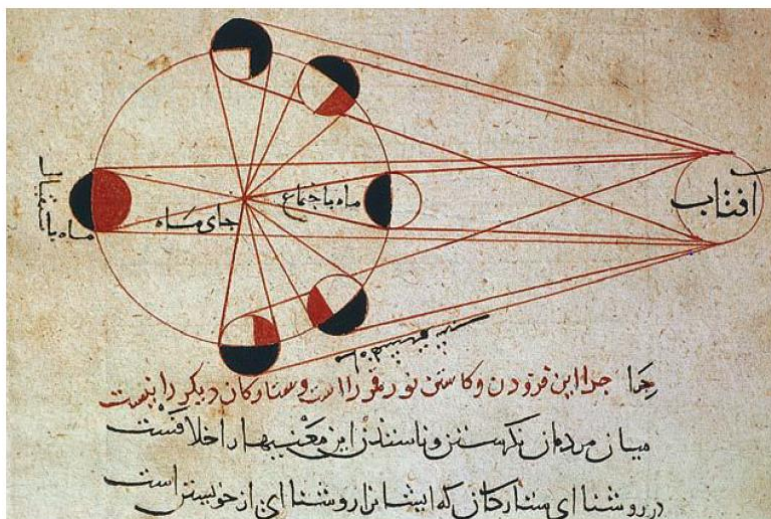 افتاب
ماه باجتماع
جای ماه
ماه باستقبال
جرا این فزودن وکاستن نور قمر را است وستارکان دیکر را نیست
میان مردمان این معنیها
در روشنا ای ستارکان که ایشانرا روشنا ای از خویشتن است